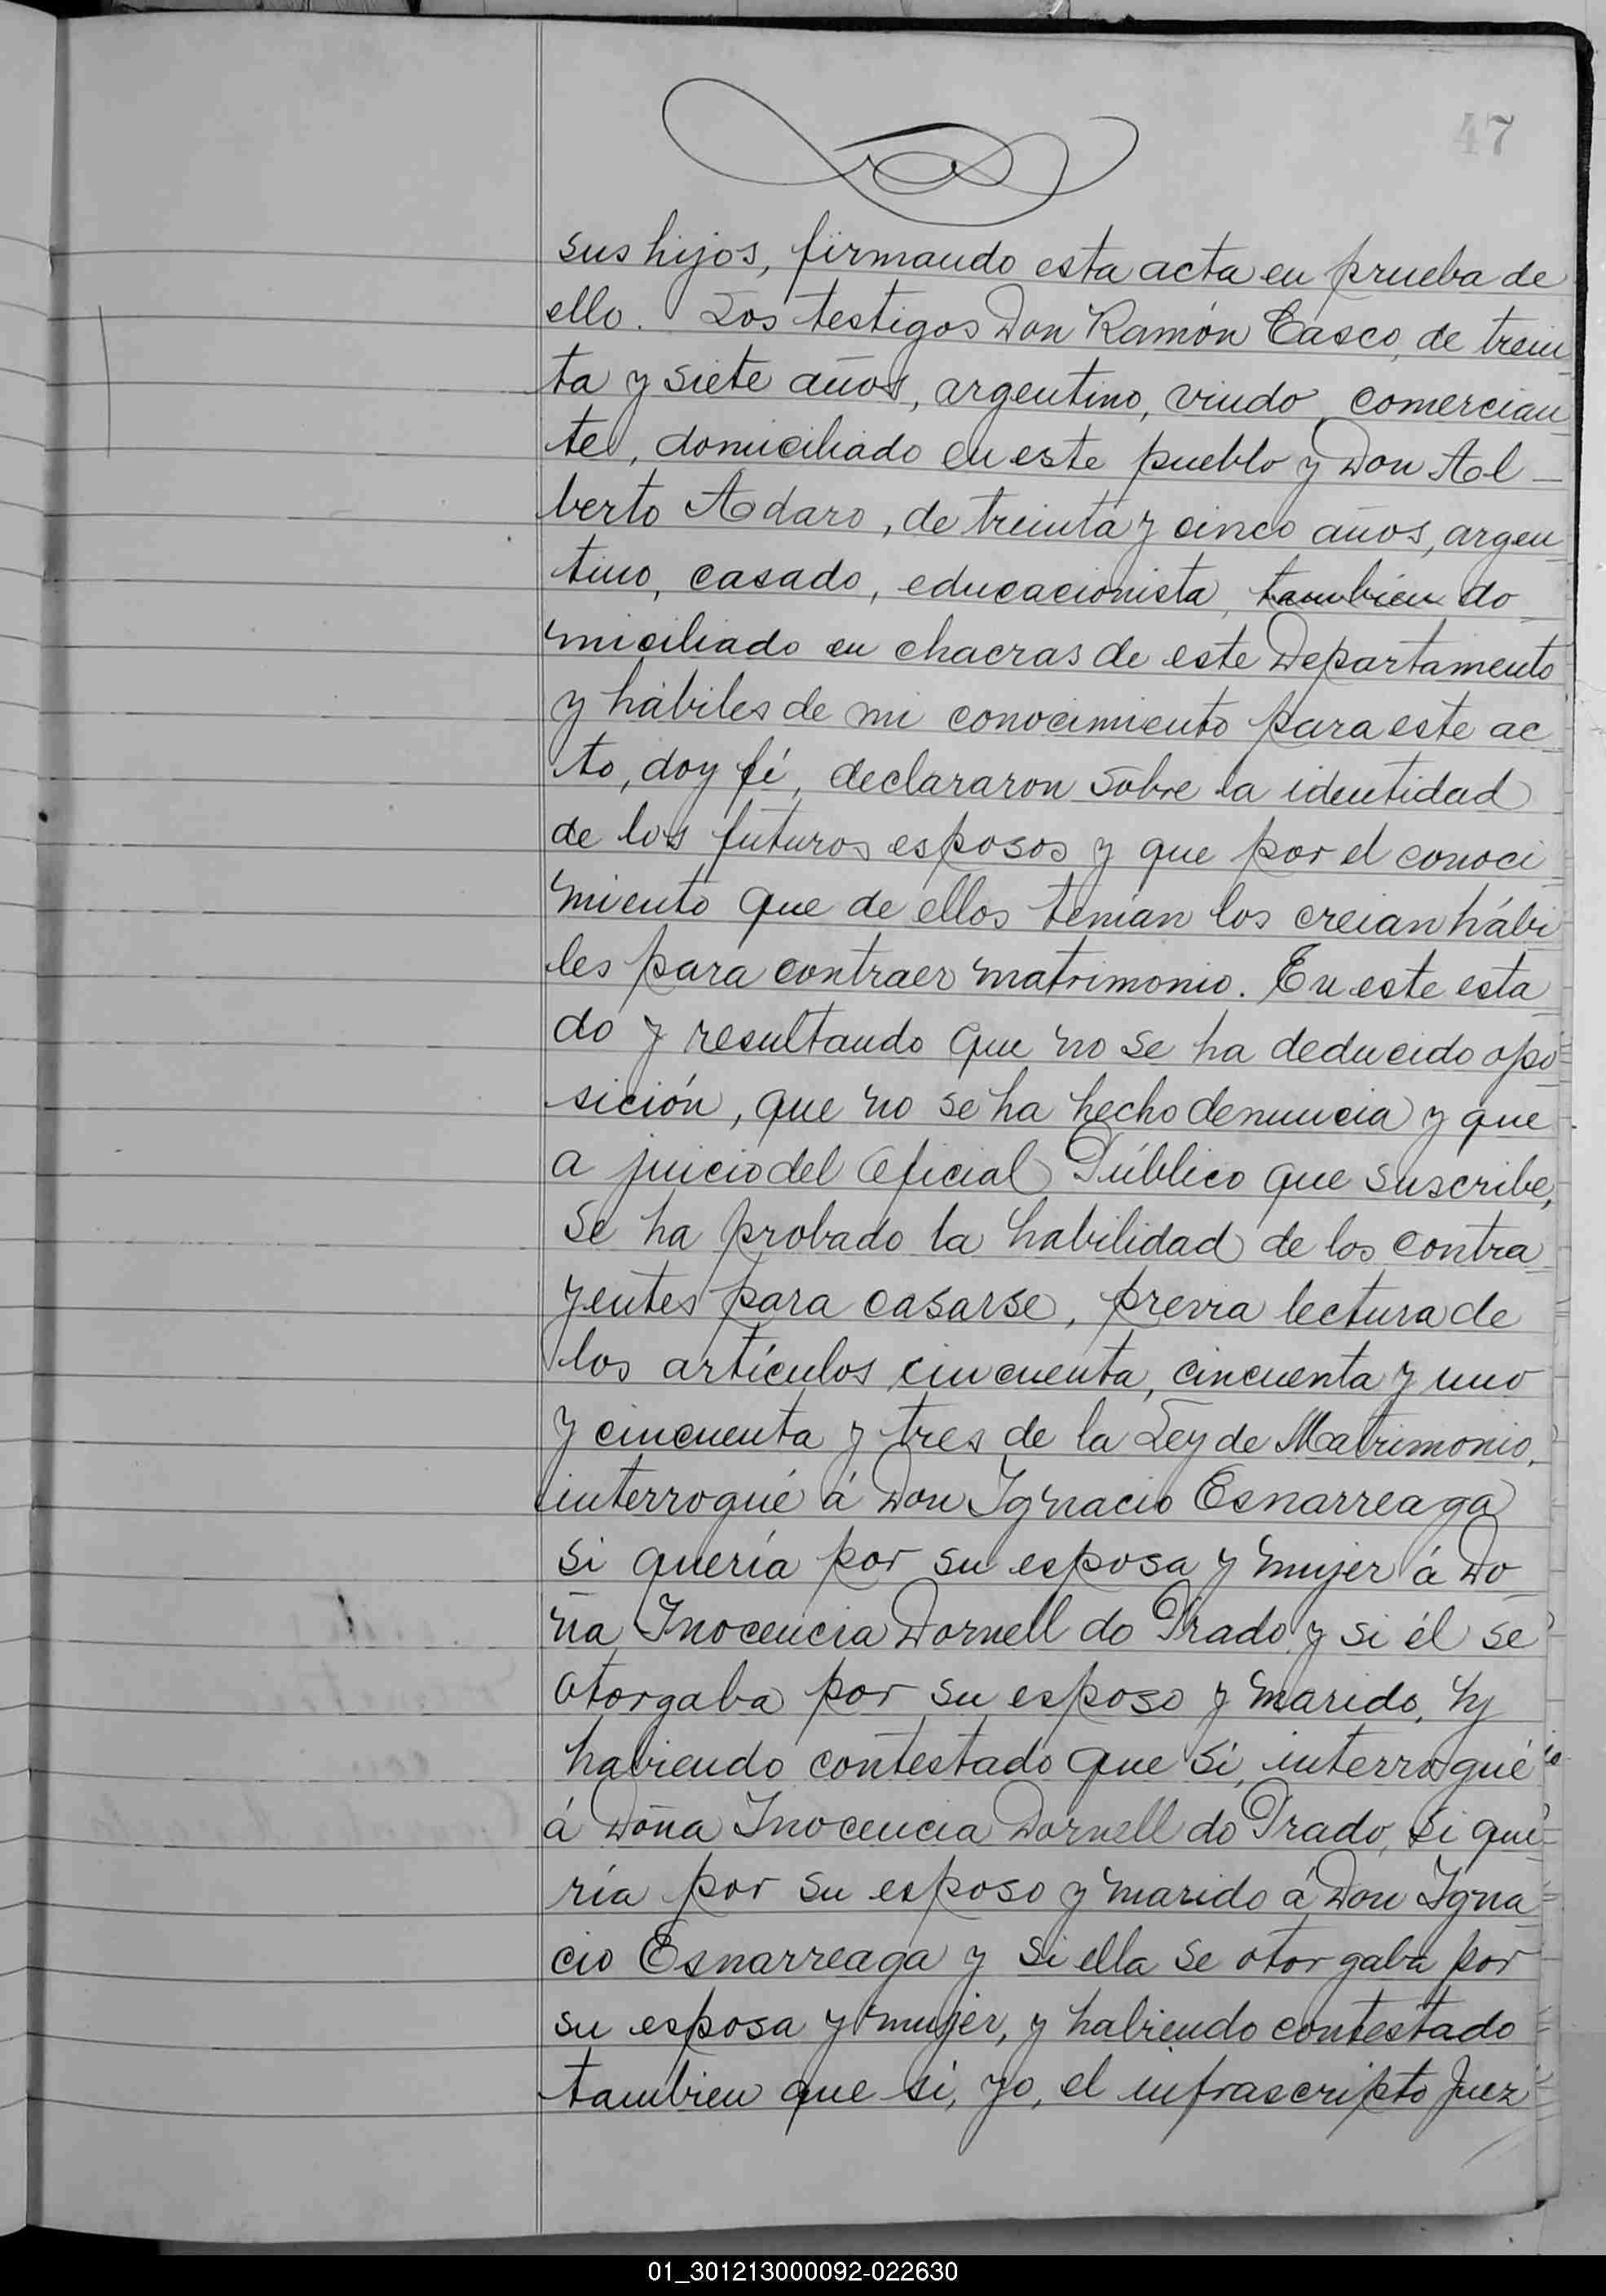 47
sus hijos, firmando esta acta en prueba de
ello. Los testigos Don Ramón Casco, de trein
ta y siete años, argentino, viudo, comercian
te, domiciliado en este pueblo y Don Al-
berto Adaro, de treinta y cinco años, argen
tino, casado, educacionista, tambien do
miciliado en chacras de este Departamento
y hábiles de mi conocimiento para este ac
to, doy fé, declararon sobre la identidad
de los futuros esposos y que por el conoci
miento que de ellos tenían los creian hábi
les para contraer matrimonio. En este esta
do y resultando que no se ha deducido opo
sición, que no se ha hecho denuncia y que
a juicio del Oficial Público que suscribe,
se ha probado la habilidad de los contra
yentes para casarse, previa lectura de
los artículos cincuenta, cincuenta y uno
y cincuenta y tres de la Ley de Matrimonio,
interrogué á Don Ignacio Esnarreaga
si quería por su esposa y mujer á Do
ña Inocencia Dornell do Prado y si él se
otorgaba por su esposo y marido, y
habiendo contestado que si, interrogué
á Doña Inocencia Dornell do Prado, si que
ría por su esposo y marido á Don Igna
cio Esnarreaga y si ella se otorgaba por
su esposa y mujer, y habiendo contestado
tambien que si, yo, el infrascripto Juez
01_301213000092-022630